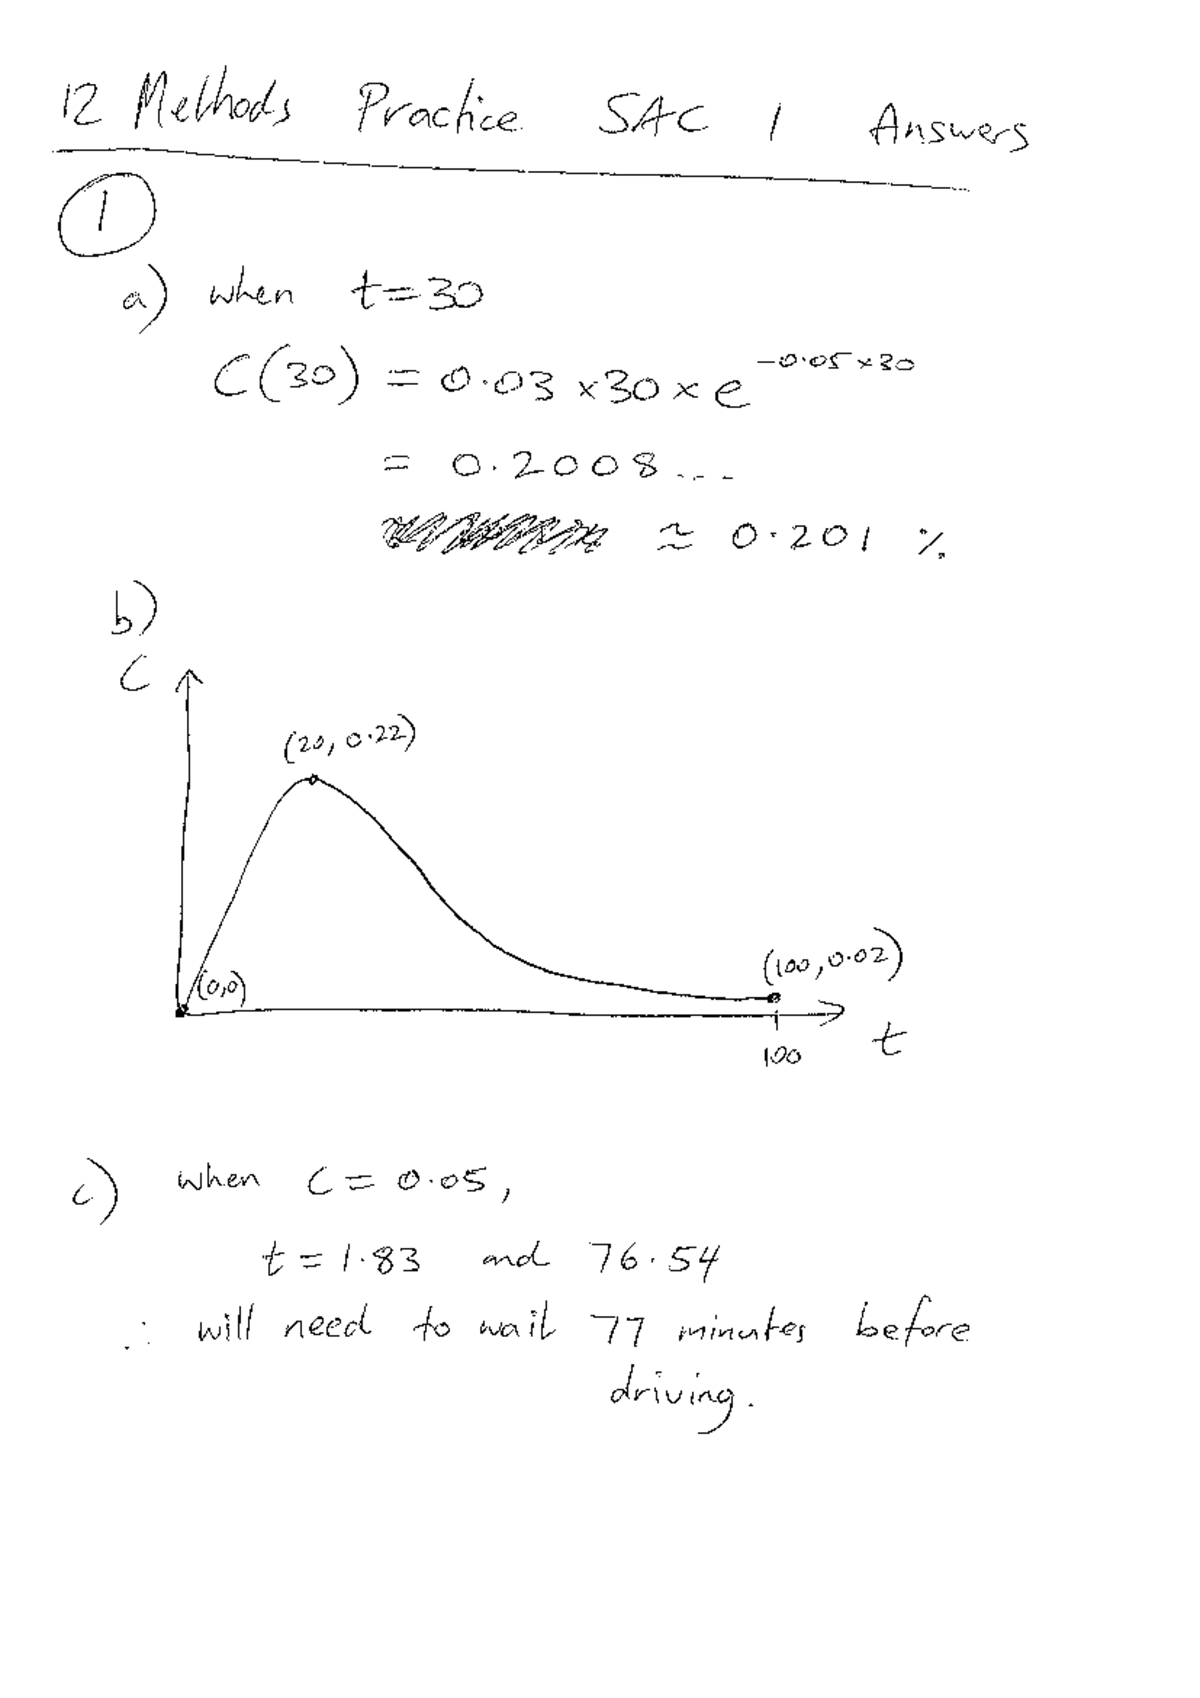 12 Methods Practice SAC 1 Answers
1
a) when t=30
C(30) = 0.03 ×30 × e^-0.05×30
= 0.2008...
≈ 0.201 %
b)
C
(20, 0.22)
(100, 0.02)
(0,0)
100
t
c) when C = 0.05,
t = 1.83 and 76.54
∴ will need to wait 77 minutes before
driving.